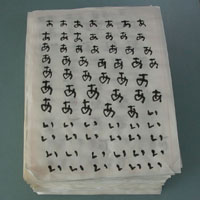 あ あ あ あ あ あ あ
あ あ あ あ あ あ あ
あ あ あ あ あ あ あ
あ あ あ あ あ あ あ
あ あ あ あ あ あ
あ あ あ あ あ あ
あ あ あ あ あ あ
あ あ あ あ い い
い い い い い い
い い い い い い
い い い い い い
い い い い い い